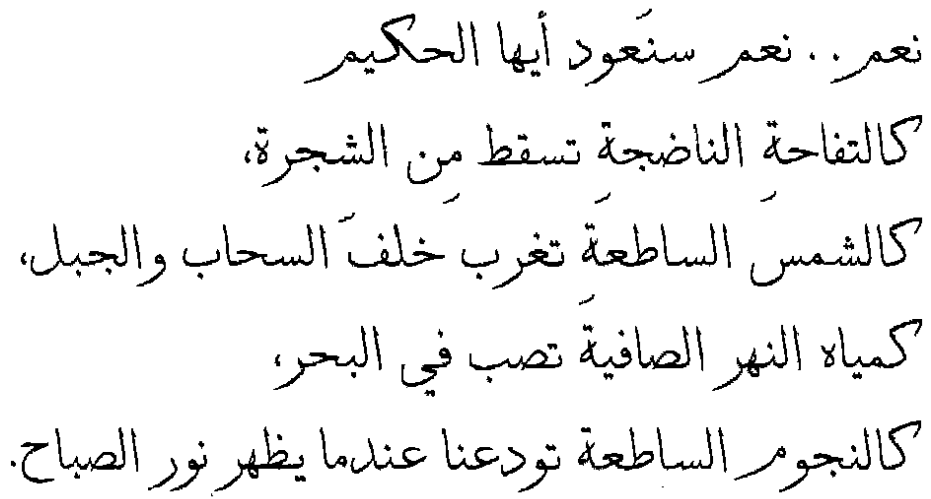 نعم.. نعم سنَعود أيها الحكيم
كالتفاحةِ الناضجةِ تسقط مِن الشجرة،
كالشمس الساطعة تغرب خلفَ السحاب والجبل،
كمياه النهر الصافية تصب في البحر،
كالنجوم الساطعة تودعنا عندما يظهر نور الصباح.